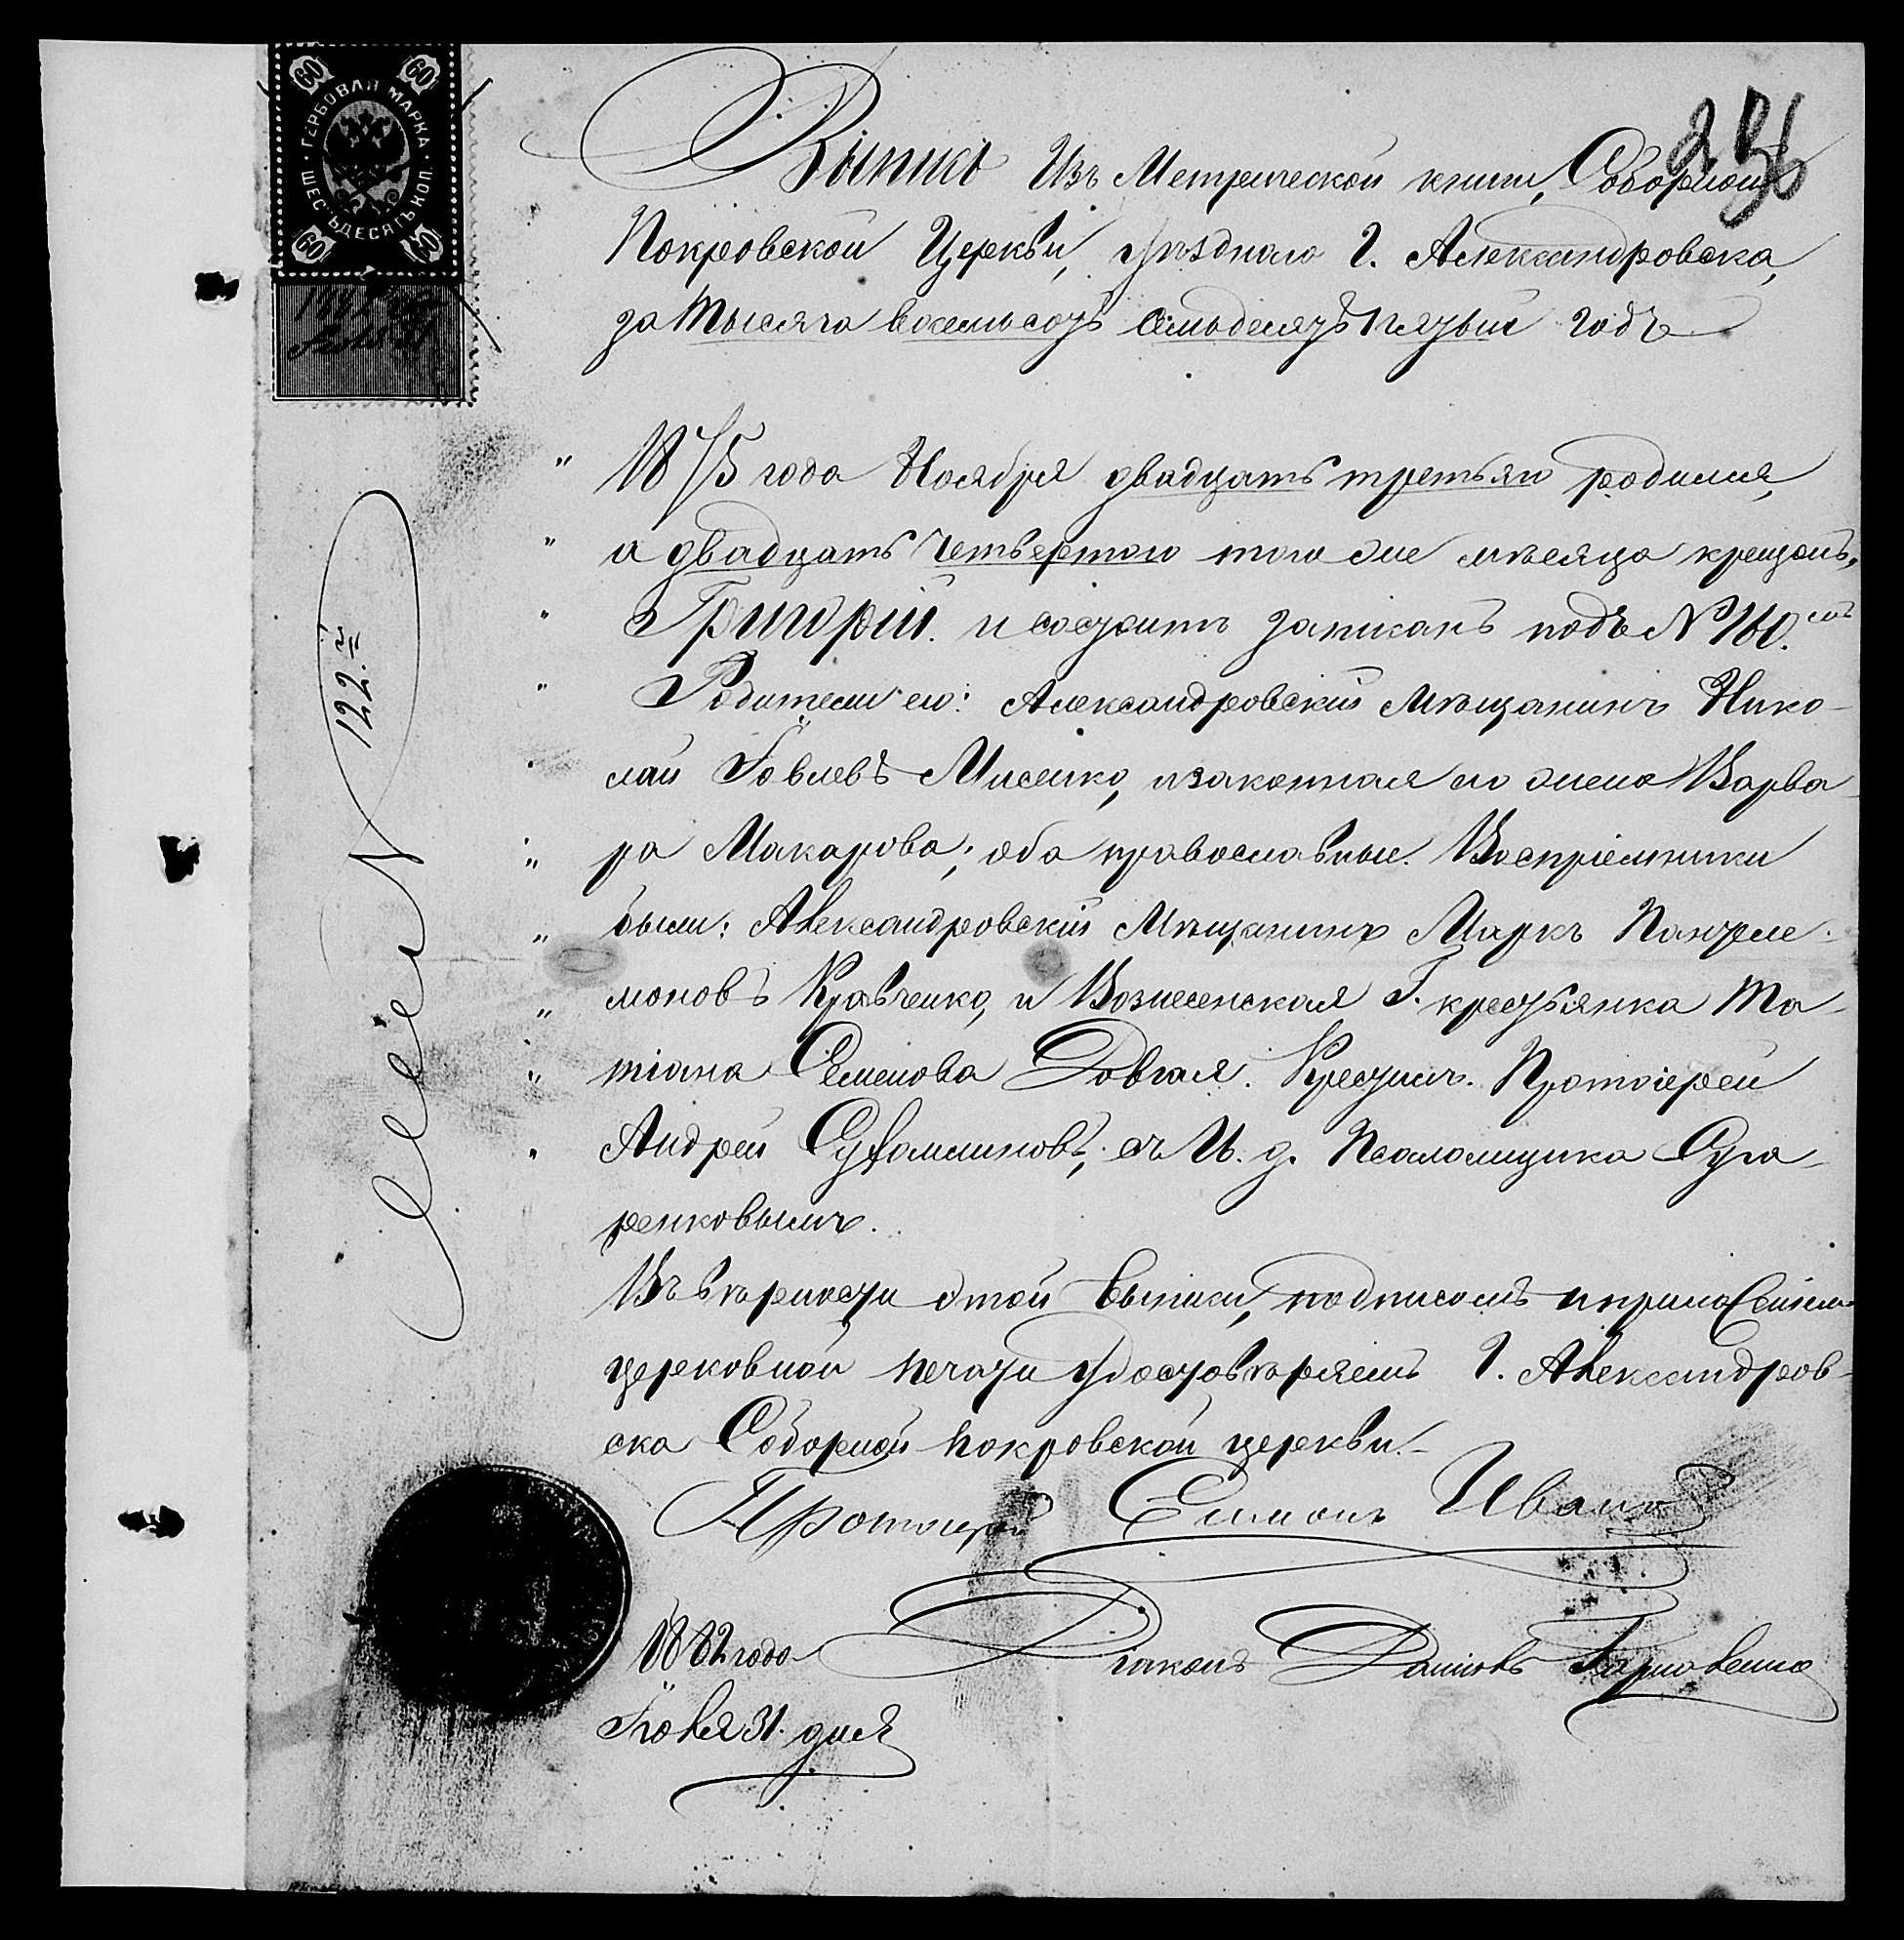 60 60
ГЕРБОВАЯ МАРКА
ШЕСТЬДЕСЯТЪ КОП.
60 60
Выпись Изъ Метрической книги, Соборной
Покровской Церкви, уѣзднаго г. Александровска,
за тысяча восемьсотъ семьдесятъ пятый годъ
1875 года Ноября двадцать третьяго родился,
а двадцать четвертого того же мѣсяца крещенъ,
Григорій. и состоитъ записанъ подъ № 160.мъ
Родители его: Александровскій мѣщанинъ Нико-
лай Іовлевъ Мисенко, и законная его жена Варва-
ра Макарова; оба православные. Воспріемники
были: Александровскій Мѣщанинъ Маркъ Пантеле-
моновъ Кравченко, и Вознесенская Г. крестьянка Та-
тіана Семенова Довгая. Крестилъ. Протоіерей
Андрей Сухомлиновъ; съ И. д. Псаломщика Суга-
ренковымъ.
Въ вѣрности этой выписи, подписомъ и приложеніемъ
церковной печати удостовѣряемъ г. Александров-
ска Соборной Покровской церкви.
Протоіерей Симонъ Ивано
1882 года Діаконъ Даніилъ
Іюля 31. дня
122.й